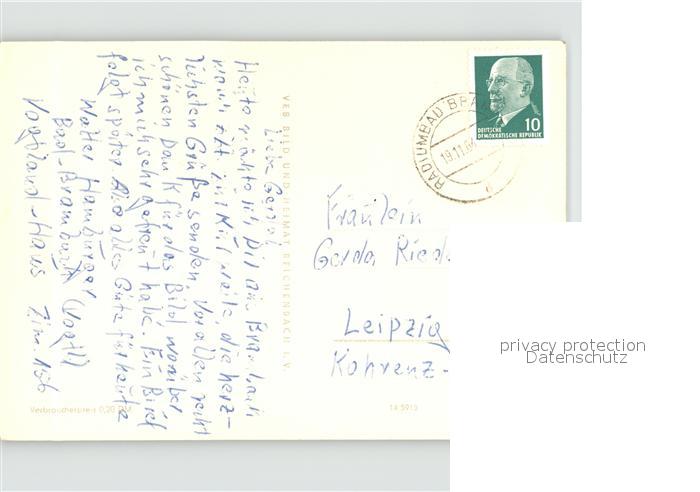 Liebe Gerda!
Heute möchte ich Dir aus Brambach
wo ich z. Zt. zur Kur weile, die herz-
lichsten Grüße senden. Vor allem recht
schönen Dank für das Bild worüber
ich mich sehr gefreut habe. Ein Brief
folgt später. Also alles Gute für heute
Walter Hamburger
Bad-Brambach (Vogtl)
Vogtland-Haus Zim. 156
VEB BILD UND HEIMAT REICHENBACH i. V.
Verbraucherpreis 0,20 DM
14 5913
RADIUMBAD BRA
19.11.6
DEUTSCHE
DEMOKRATISCHE REPUBLIK
10
Fräulein
Gerda Riede
Leipzig
Kohrenz-
privacy protection
Datenschutz